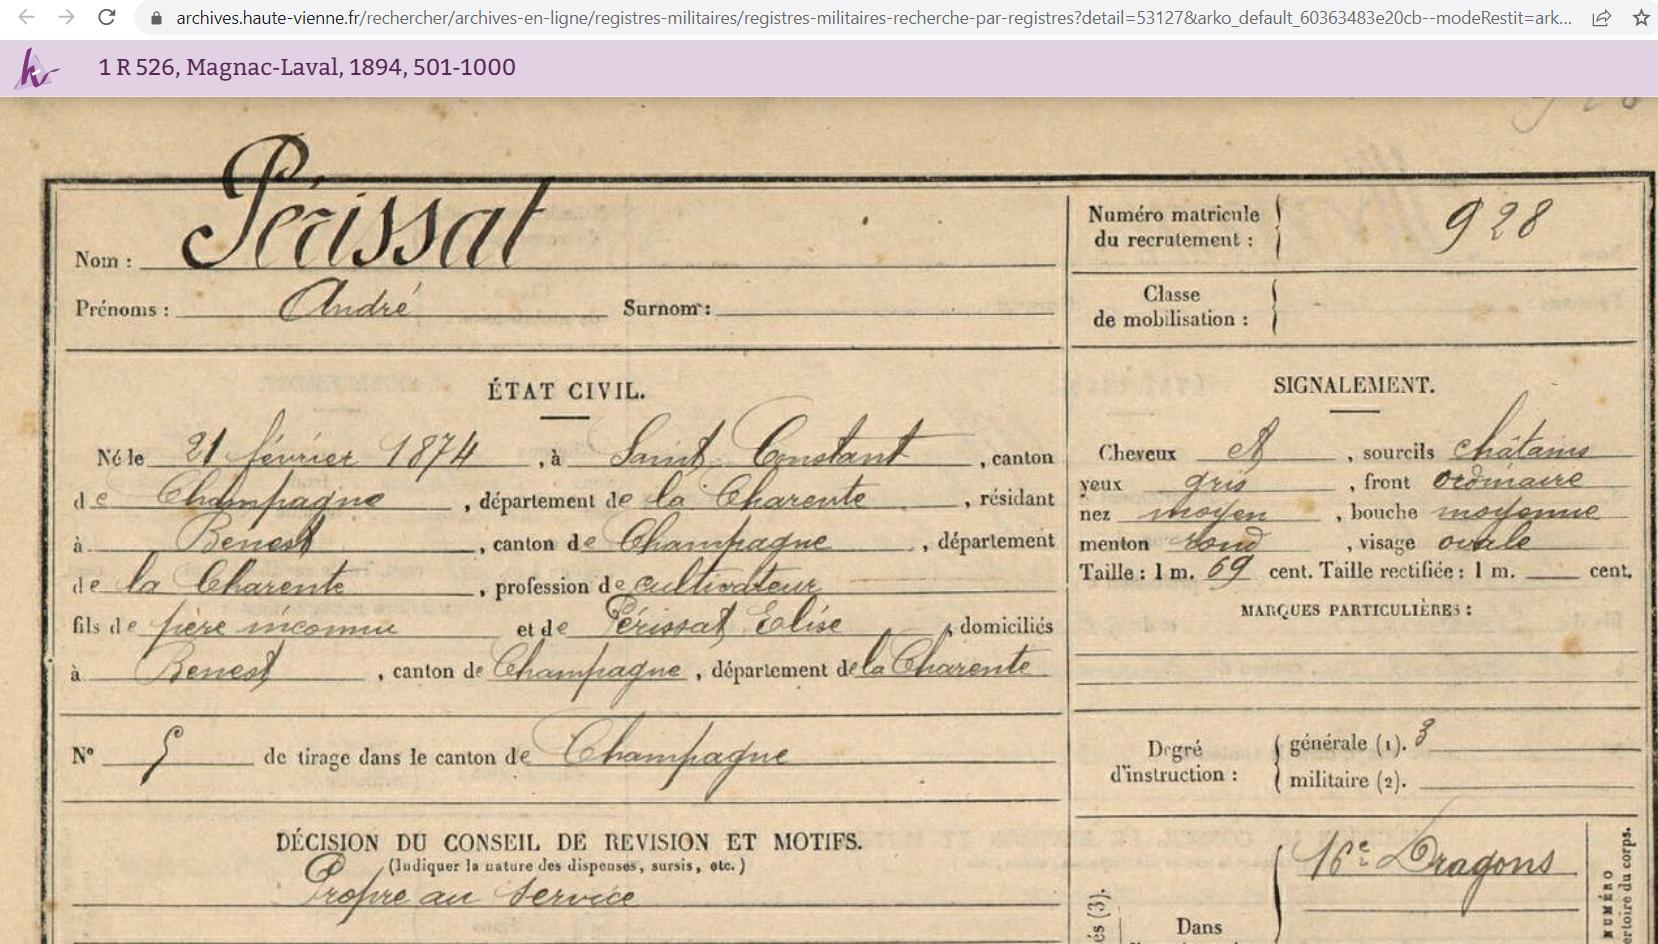 archives.haute-vienne.fr/rechercher/archives-en-ligne/registres-militaires/registres-militaires-recherche-par-registres?detail=53127&arko_default_60363483e20cb--modeRestit=ark...
1 R 526, Magnac-Laval, 1894, 501-1000
Nom : Périssat
Prénoms : André Surnom :
Numéro matricule du recrutement : 928
Classe de mobilisation :
ÉTAT CIVIL.
Né le 21 février 1874, à Saint Constant, canton
de Champagne, département de la Charente, résidant
à Benest, canton de Champagne, département
de la Charente, profession de cultivateur
fils de père inconnu et de Périssat Elise, domiciliés
à Benest, canton de Champagne, département de la Charente
N° 5 de tirage dans le canton de Champagne
SIGNALEMENT.
Cheveux et, sourcils châtains
yeux gris, front ordinaire
nez moyen, bouche moyenne
menton rond, visage ovale
Taille : 1 m. 69 cent. Taille rectifiée : 1 m. cent.
MARQUES PARTICULIÈRES :
Degré d'instruction : générale (1). 3
militaire (2).
DÉCISION DU CONSEIL DE REVISION ET MOTIFS.
(Indiquer la nature des dispenses, sursis, etc.)
Propre au service
16e Dragons
Dans
NUMÉRO